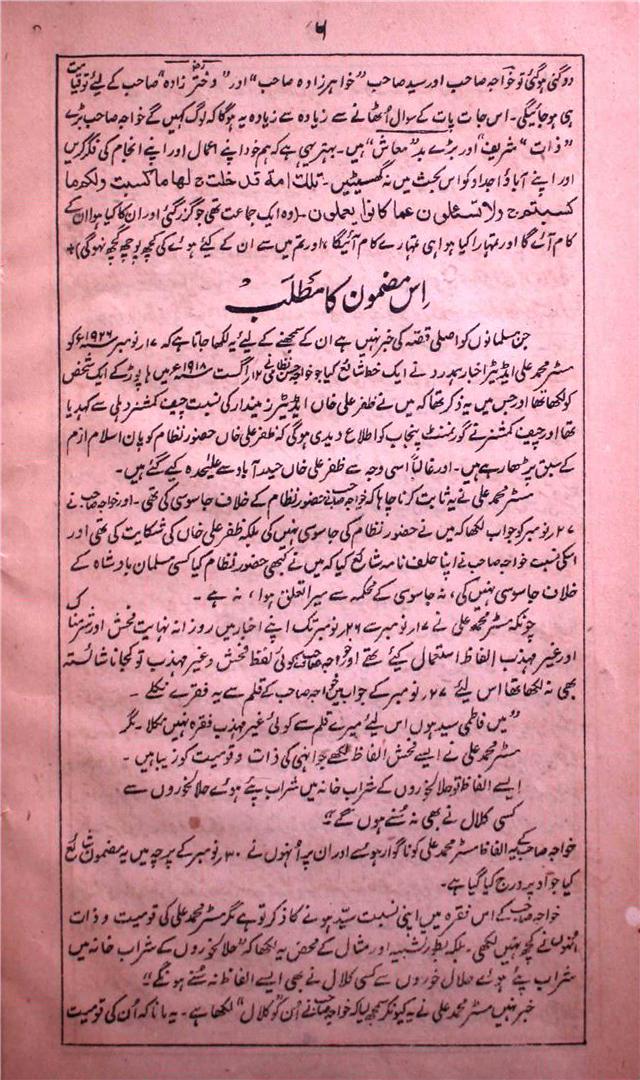 ۶
دوگنی ہوگئی تو خواجہ صاحب اور سید صاحب "خواہرزادہ صاحب" اور "دختر زادہ" صاحب کے لئے تو قیامت
ہی ہوجائیگی۔ اس جات پات کے سوال اُٹھانے سے زیادہ سے زیادہ یہ ہوگا کہ لوگ کہیں گے خواجہ صاحب بڑے
"ذات" شریف" اور بڑے بد "معاش" ہیں۔ بہتر یہی ہے کہ ہم خود اپنے اعمال اور اپنے انجام کی فکر کریں
اور اپنے آباؤ اجداد کو اس بحث میں نہ گھسیٹیں۔ تلک امة قد خلت ج لها ما کسبت ولکم ما
کسبتم ج ولا تسئلون عما کانوا یعملون۔ (وہ ایک جماعت تھی جو گزر گئی اور ان کا کیا ہوا ان کے
کام آئے گا اور تمہارا کیا ہوا ہی تمہارے کام آئیگا، اور تم میں سے ان کے کیئے ہوئے کی کچھ پوچھ گچھ نہو گی) +
اِس مضمون کا مطلَب
جن مسلمانوں کو اصلی قصّہ کی خبر نہیں ہے ان کے سمجھنے کے لیئے یہ لکھا جاتا ہے کہ ۱۷ نومبر ۱۹۲۶ء کو
مسٹر محمد علی ایڈیٹر اخبار ہمدرد نے ایک خط شائع کیا جو خواجہ حسن نظامی نے ۱۲ اگست ۱۹۱۸ء میں ہاپوڑ کے ایک شخص
کو لکھا تھا اور جس میں یہ ذکر تھا کہ میں نے ظفر علی خاں ایڈیٹر زمیندار کی نسبت چیف کمشنر دہلی سے کہدیا
تھا اور چیف کمشنر نے گورنمنٹ پنجاب کو اطلاع دیدی ہوگی کہ ظفر علی خاں حضور نظام کو پان اسلام ازم
کے سبق پڑھا رہے ہیں۔ اور غالباً اسی وجہ سے ظفر علی خاں حیدر آباد سے علیٰحدہ کیے گئے ہیں۔
مسٹر محمد علی نے یہ ثابت کرنا چاہا کہ خواجہ صاحب نے حضور نظام کے خلاف جاسوسی کی تھی۔ اور خواجہ صاحب نے
۲۷ نومبر کو جواب لکھا کہ میں نے حضور نظام کی جاسوسی نہیں کی بلکہ ظفر علی خاں کی شکایت کی تھی اور
اسکی نسبت خواجہ صاحب نے اپنا حلف نامہ شائع کیا کہ میں نے کبھی حضور نظام کیا کسی مسلمان بادشاہ کے
خلاف جاسوسی نہیں کی، نہ جاسوسی کے محکمہ سے میرا تعلق ہوا، نہ ہے۔
چونکہ مسٹر محمد علی نے ۱۷ نومبر سے ۲۶ نومبر تک اپنے اخبار میں روزانہ نہایت فحش اور شرمناک
اور غیر مہذب الفاظ استعمال کیئے تھے اور خواجہ صاحب نے کوئی لفظ فحش و غیر مہذب تو کجا ناشائستہ
بھی نہ لکھا تھا اس لیئے ۲۷ نومبر کے جواب میں خواجہ صاحب کے قلم سے یہ فقرے نکلے۔
"میں فاطمی سید ہوں اس لیئے میرے قلم سے کوئی غیر مہذب فقرہ نہیں نکلا۔ مگر
مسٹر محمد علی نے ایسے فحش الفاظ لکھے جو انہی کی ذات و قومیت کو زیبا ہیں۔
ایسے الفاظ تو حلالخوروں کے شراب خانہ میں شراب پیئے ہوئے حلالخوروں سے
کسی کلال نے بھی نہ سُنے ہوں گے"
خواجہ صاحب کے یہ الفاظ مسٹر محمد علی کو ناگوار ہوئے اور ان پر اُنہوں نے ۳۰ نومبر کے پرچہ میں یہ مضمون شائع
کیا جو اوپر درج کیا گیا ہے۔
خواجہ صاحب کے اس فقرہ میں اپنی نسبت سیّد ہونے کا ذکر تو ہے مگر مسٹر محمد علی کی قومیت و ذات
اُنہوں نے کچھ نہیں لکھی۔ بلکہ بطور تشبیہ اور مثال کے محض یہ لکھا کہ "حلالخوروں کے شراب خانہ میں
شراب پیئے ہوئے حلال خوروں سے کسی کلال نے بھی ایسے الفاظ نہ سُنے ہونگے"
خبر نہیں مسٹر محمد علی نے یہ کیونکر سمجھ لیا کہ خواجہ صاحب نے اُن کو "کلال" لکھا ہے۔ یہ مانا کہ اُن کی قومیت